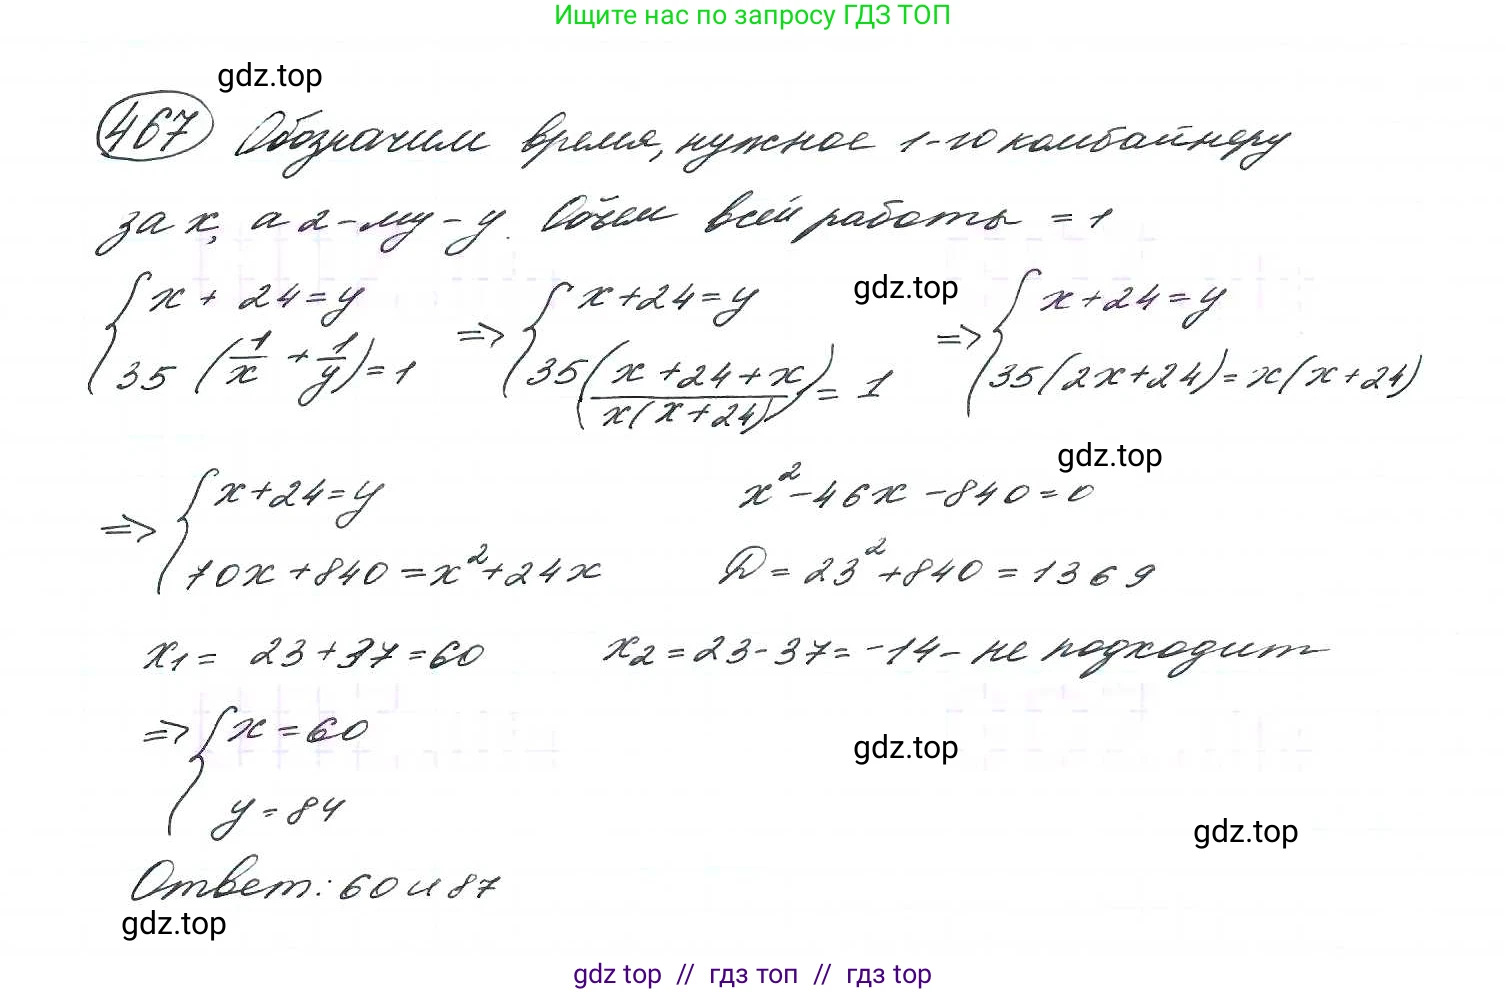 Ищите нас по запросу ГДЗ ТОП
gdz.top
467 Обозначим время, нужное 1-го комбайнеру
за x, а 2-му - y. Объем всей работы = 1
{ x + 24 = y
35 (1/x + 1/y) = 1
=> { x + 24 = y
35 ((x + 24 + x)/(x(x + 24))) = 1
gdz.top
=> { x + 24 = y
35 (2x + 24) = x(x + 24)
gdz.top
=> { x + 24 = y
70x + 840 = x² + 24x
x² - 46x - 840 = 0
D = 23² + 840 = 1369
x₁ = 23 + 37 = 60 x₂ = 23 - 37 = -14 - не подходит
=> { x = 60
y = 84
gdz.top
gdz.top
Ответ: 60 и 87
gdz.top
gdz top // гдз топ // гдз top